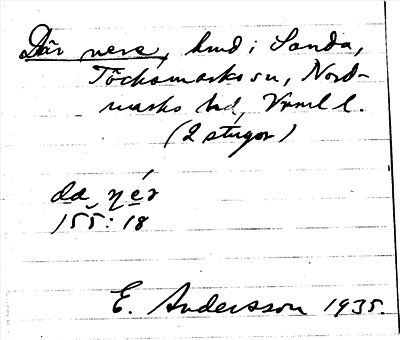 Där nere, hmd i Sanda,
Töcksmarks sn, Nord-
marks hd, Vrml l.
(2 stugor)
da nér
155: 18
E. Andersson 1935.